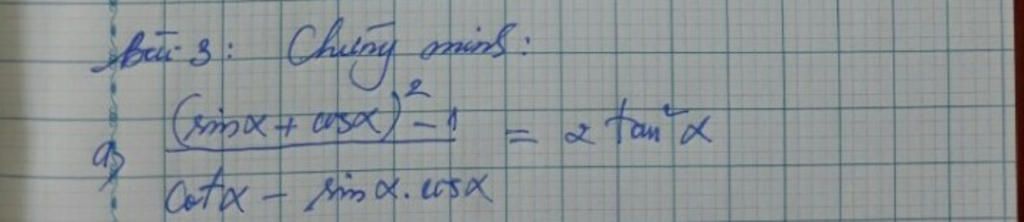 Bài 3: Chứng minh:
a) \frac{(sinα + cosα)² - 1}{cotα - sinα.cosα} = 2 tan²α